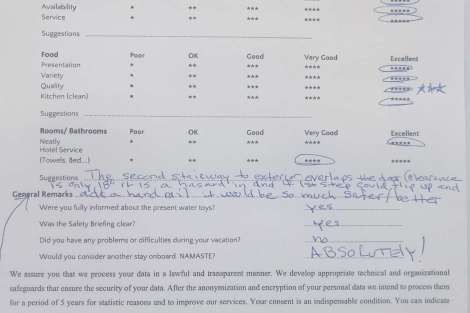 Availability * ** *** **** *****
Service * ** *** **** *****
Suggestions
Food Poor OK Good Very Good Excellent
Presentation * ** *** **** *****
Variety * ** *** **** *****
Quality * ** *** **** *****
Kitchen (clean) * ** *** **** *****
Suggestions
Rooms/ Bathrooms Poor OK Good Very Good Excellent
Neatly * ** *** **** *****
Hotel Service
(Towels, Bed...) * ** *** **** *****
Suggestions The second stairway to exterior overlaps the door (clearance
is only 18" it is a hasard in and if 1st step could flip up and
General Remarks add a hand rail it would be so much safer/better
Were you fully informed about the present water toys? yes
Was the Safety Briefing clear? yes
Did you have any problems or difficulties during your vacation? no
Would you consider another stay onboard. NAMASTE? ABSOLUTELY!
We assure you that we process your data in a lawful and transparent manner. We develop appropriate technical and organizational
safeguards that ensure the security of your data. After the anonymization and encryption of your personal data we intend to process them
for a period of 5 years for statistic reasons and to improve our services. Your consent is an indispensable condition. You can indicate